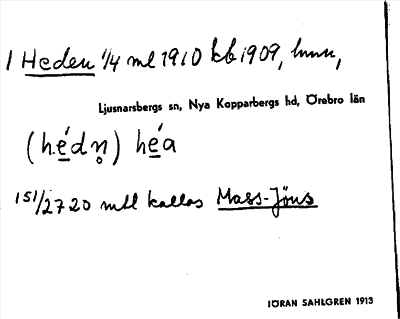 1 Heden 1/4 ml 1910 kb 1909, hmn,
Ljusnarsbergs sn, Nya Kopparbergs hd, Örebro län
(hédn̥) héa
151/2720 mtl kallas Mass-Jöns
JÖRAN SAHLGREN 1913